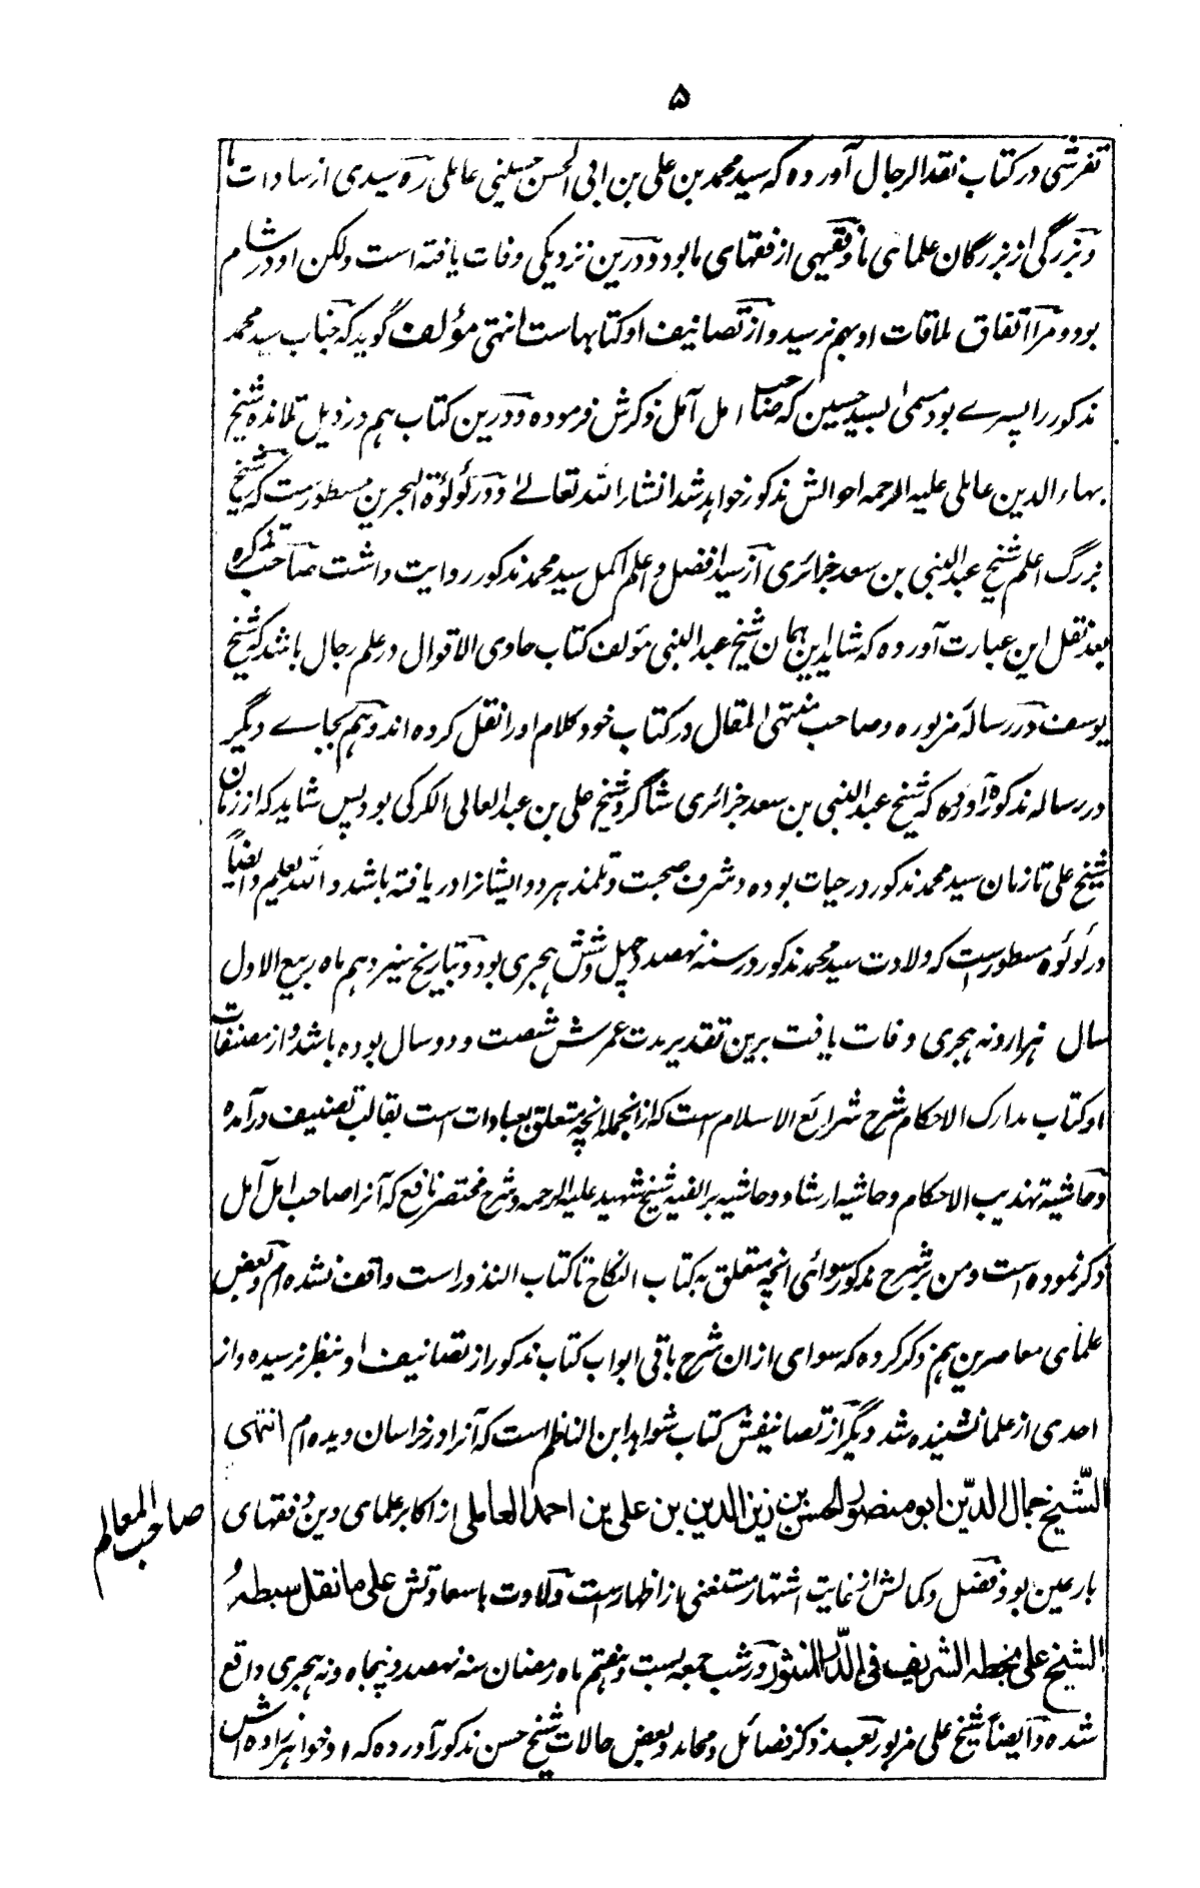 ۵
تفرشی در کتاب نقد الرجال آورده که سید محمد بن علی بن ابی الحسن حسینی عاملی ره سیدی از سادات ما
و بزرگی از بزرگان علمای ما و فقیهی از فقهای ما بود و درین نزدیکی وفات یافته است ولکن او در شام
بود و مرا اتفاق ملاقات او بهم نرسید و از تصانیف او کتابهاست انتهی مؤلف گوید که جناب سید محمد
مذکور را پسرے بود مسمی السید حسین که صاحب امل آمل ذکرش فرموده و درین کتاب هم در ذیل تلامذه شیخ
بهاء الدین عاملی علیه الرحمه احوالش مذکور خواهد شد انشاء الله تعالے و در لؤلؤة البحرین مسطورست که شیخ
بزرگ اعلم شیخ عبد النبی بن سعد جزائری از سید افضل و اعلم اکمل سید محمد مذکور روایت داشت صاحب تذکره
بعد نقل این عبارت آورده که شاید این همان شیخ عبد النبی مؤلف کتاب حاوی الاقوال در علم رجال باشد که شیخ
یوسف در رسالهٔ مزبوره و صاحب منتهی المقال در کتاب خود کلام او را نقل کرده اند و هم بجاے دیگر
در رساله مذکوره آورده که شیخ عبد النبی بن سعد جزائری شاگرد شیخ علی بن عبد العالی الکرکی بود پس شاید که از زمان
شیخ علی تا زمان سید محمد مذکور در حیات بوده و شرف صحبت و تلمذ هر دو ایشانرا دریافته باشد و الله یعلم و ایضاً
در لؤلؤه مسطور است که ولادت سید محمد مذکور در سنه نهصد و چهل و شش هجری بود و بتاریخ هیزدهم ماه ربیع الاول
سال هزار و نه هجری وفات یافت برین تقدیر مدت عمرش شصت و دو سال بوده باشد و از مصنفات
او کتاب مدارک الاحکام شرح شرائع الاسلام ست که از انجمله انچه متعلق بعبادات است بقالب تصنیف درآمده
و حاشیهٔ تهذیب الاحکام و حاشیه ارشاد و حاشیه بر الفیه شیخ شهید علیه الرحمه و شرح مختصر نافع که آنرا صاحب امل آمل
ذکر نموده است و من بر شرح مذکور سوائی انچه متعلق به کتاب النکاح تا کتاب النذور است واقف نشده ام و بعض
علمای معاصرین هم ذکر کرده که سوای ازان شرح باقی ابواب کتاب مذکور از تصانیف او بنظر نرسیده و از
احدی از علما نشنیده شد دیگر از تصانیفش کتاب شواهد ابن الناظم است که آنرا در خراسان دیده ام انتهی
الشّیخ جمال الدّین ابو منصور الحسن بن زین الدین بن علی بن احمد العاملی از اکابر علمای دین و فقهای
صاحب المعالم
بارعین بود فضل و کمالش از غایت اشتهار مستغنی از اظهارست ولادت باسعادتش علی ما نقل سبطهُ
الشیخ علی بخطه الشریف فی الدّر المنثور در شب جمعه بست و هفتم ماه رمضان سنه نهصد و پنجاه و نه هجری واقع
شده و ایضاً شیخ علی مزبور بعد ذکر فضائل و محامد و بعض حالات شیخ حسن مذکور آورده که او خواهرزاده اش